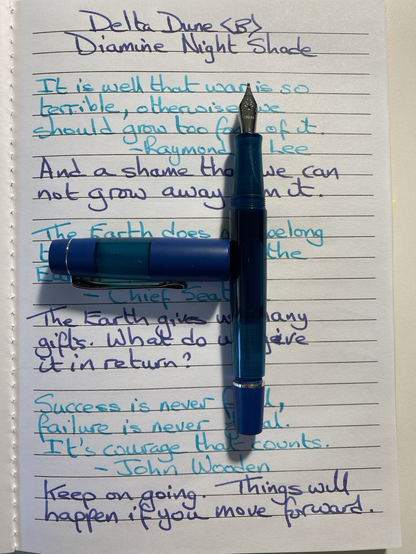 Delta Dune <B>
Diamine Night Shade
It is well that war is so
terrible, otherwise we
should grow too of it.
-Raymond Lee
And a shame we can
not grow away it.
The Earth does belong
the
- Chief
The Earth gives many
gifts. What do give
it in return?
Success is never
failure is never
It's courage that counts.
- John Wooden
Keep on going. Things will
happen if you move forward.